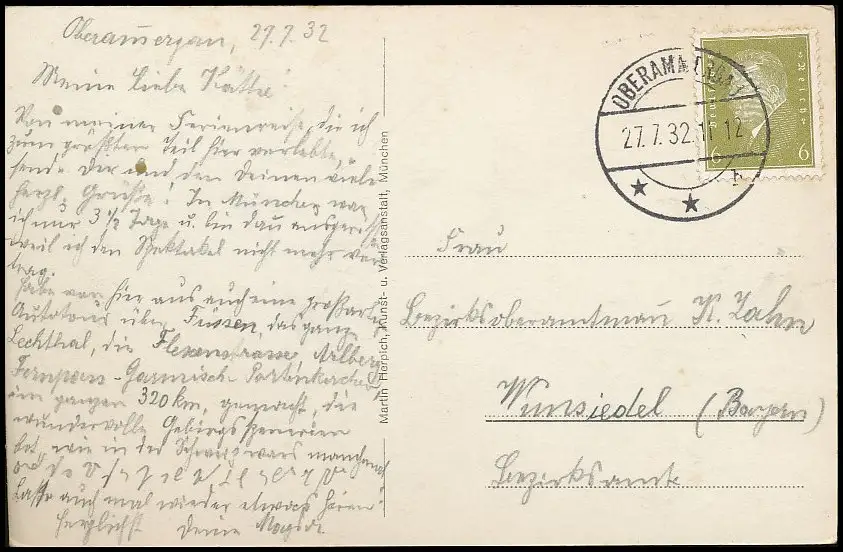 Oberammergau, 27.7.32
Meine liebe Käthe!
Von meiner Ferienreise, die ich
zum größten Teil hier verlebte,
sende Dir und den Deinen viele
herzl. Grüße! In München war
ich nur 3 1/2 Tage u. bin dann ausgerissen
weil ich den Spektakel nicht mehr ver-
trag.
Habe von hier aus auch eine großart.
Autotour über Füssen, das ganze
Lechthal, die Flexenstrasse, Arlberg
Fernpass - Garmisch-Partenkirchen
im ganzen 320 km, gemacht, die
wundervolle Gebirgsszenerien
bot, wie in der Schweiz wars manchmal
Lasse auch mal wieder etwas hören!
Herzlichst Deine
Martin Herpich, Kunst- u. Verlagsanstalt, München
OBERAMMERGAU
27.7.32. 12
6 6
Frau
Bezirksoberamtmann K. Zahn
Wunsiedel (Bayern)
Bezirksamt